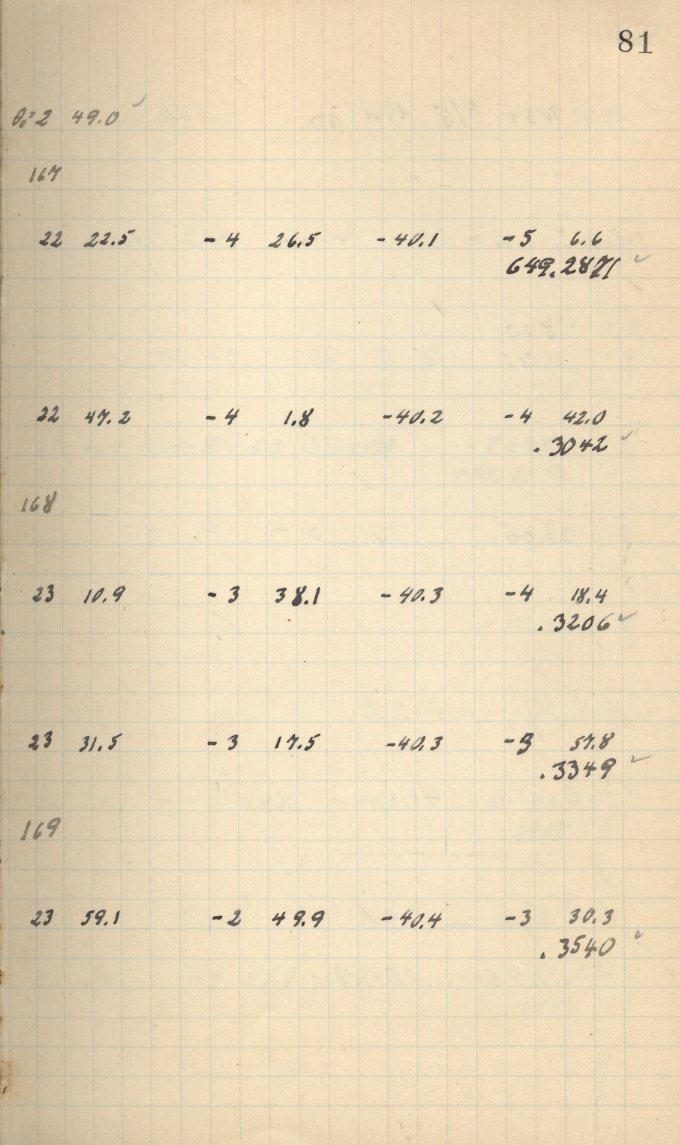 81
θ₀=2 49.0 ✓
167
22 22.5 -4 26.5 -40.1 -5 6.6
649.2871 ✓
22 47.2 -4 1.8 -40.2 -4 42.0
.3042 ✓
168
23 10.9 -3 38.1 -40.3 -4 18.4
.3206 ✓
23 31.5 -3 17.5 -40.3 -3 57.8
.3349 ✓
169
23 59.1 -2 49.9 -40.4 -3 30.3
.3540 ✓